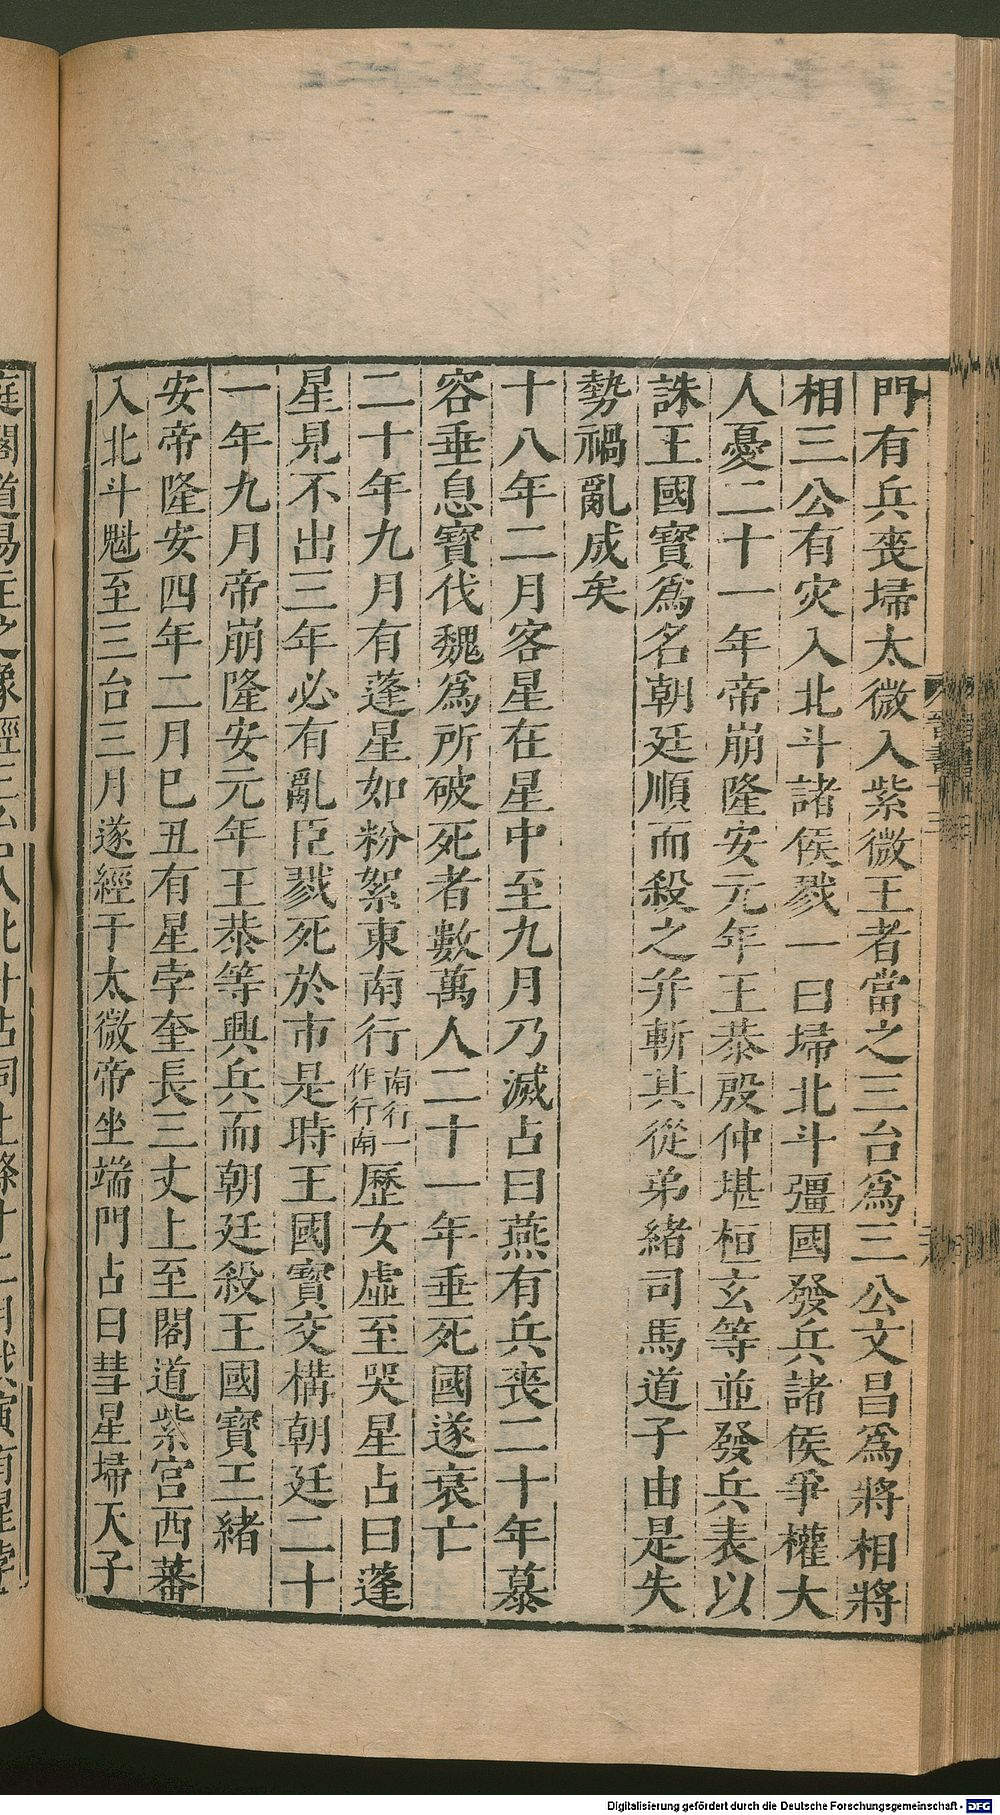 門有兵喪埽太微入紫微王者當之三台爲三公文昌爲將相將
相三公有灾入北斗諸侯戮一曰埽北斗彊國發兵諸侯爭權大
人憂二十一年帝崩隆安元年王恭殷仲堪桓玄等並發兵表以
誅王國寳爲名朝廷順而殺之并斬其從弟緒司馬道子由是失
勢禍亂成矣
十八年二月客星在星中至九月乃滅占曰燕有兵喪二十年慕
容垂息寳伐魏爲所破死者數萬人二十一年垂死國遂衰亡
二十年九月有蓬星如粉絮東南行南行一作行南歷女虛至哭星占曰蓬
星見不出三年必有亂臣戮死於市是時王國寳交構朝廷二十
一年九月帝崩隆安元年王恭等興兵而朝廷殺王國寳王緒
安帝隆安四年二月巳丑有星孛奎長三丈上至閣道紫宫西蕃
入北斗魁至三台三月遂經于太微帝坐端門占曰彗星埽天子
Digitalisierung gefördert durch die Deutsche Forschungsgemeinschaft - DFG